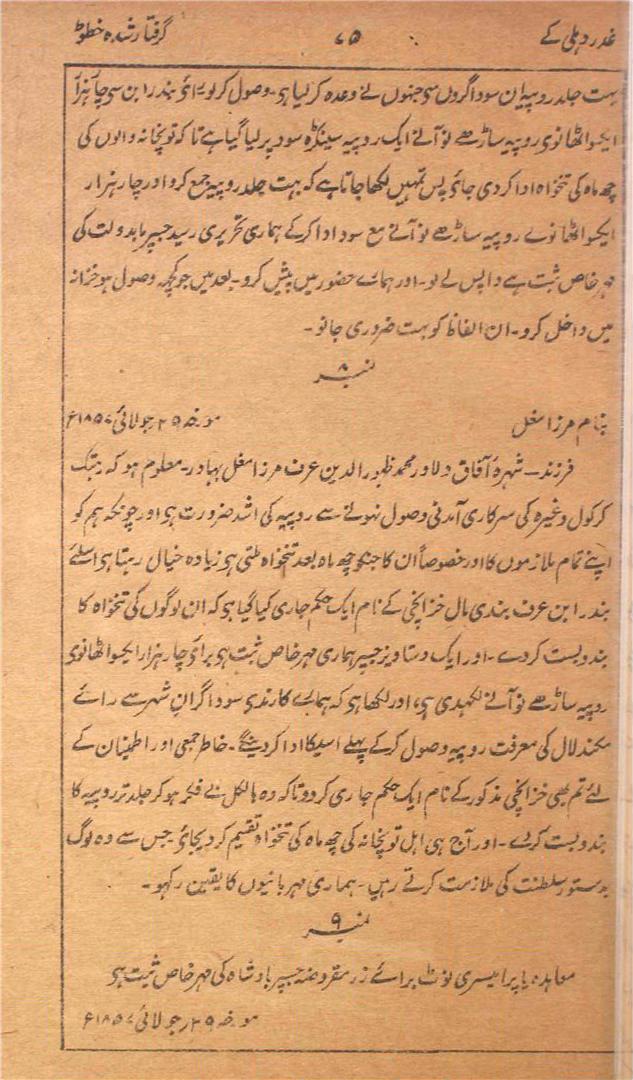 غدر دہلی کے ۷۵ گرفتار شدہ خطوط
بہت جلد روپیہ ان سوداگروں سی جنہوں نے وعدہ کر لیا ہی۔ وصول کر لو۔ برائی بندر ابن سی چار ہزار
ایکسو اٹھانوی روپیہ ساڑھے نو آنے ایک روپیہ سینکڑہ سود پر لیا گیا ہے تاکہ توپخانہ والوں کی
چھ ماہ کی تنخواہ ادا کر دی جائی پس تمہیں لکھا جاتا ہے کہ بہت جلد روپیہ جمع کرو اور چار ہزار
ایکسو اٹھانوے روپیہ ساڑھے نو آنے مع سود ادا کر کے ہماری تحریری رسید جسپر مابدولت کی
مہر خاص ثبت ہے واپس لے لو۔ اور ہمارے حضور میں پیش کرو۔ بعد میں جو کچھ وصول ہو خزانہ
میں داخل کرو۔ ان الفاظ کو بہت ضروری جانو۔
نمبر ۸
بنام مرزا مغل مورخہ ۲۹ جولائی ۱۸۵۷ء
فرزند۔ شہرۂ آفاق دلاور محمد ظہور الدین عرف مرزا مغل بہادر۔ معلوم ہو کہ رہتک
کرکول وغیرہ کی سرکاری آمدنی وصول نہونے سے روپیہ کی اشد ضرورت ہی اور چونکہ ہم کو
اپنے تمام ملازموں کا اور خصوصاً ان کا جنکو چھ ماہ بعد تنخواہ ملتی ہی زیادہ خیال رہتا ہی اسلئے
بندرابن عرف بندی مال خزانچی کے نام ایک حکم جاری کیا گیا ہو کہ ان لوگوں کی تنخواہ کا
بندوبست کر دے۔ اور ایک دستاویز جسپر ہماری مہر خاص ثبت ہی برائی چار ہزار ایکسو اٹھانوی
روپیہ ساڑھے نو آنے لکھدی ہی، اور لکھا ہی کہ ہمارے کارندی سوداگران شہر سے رائے
مکند لال کی معرفت روپیہ وصول کر کے پہلے اسیکا ادا کر دینگے۔ خاطر جمعی اور اطمینان کے
لئے تم بھی خزانچی مذکور کے نام ایک حکم جاری کر دو تاکہ وہ بالکل بے فکر ہو کر جلد تر روپیہ کا
بندوبست کرے۔ اور آج ہی اہل توپخانہ کی چھ ماہ کی تنخواہ تقسیم کر دیجائی۔ جس سے وہ لوگ
بدستور سلطنت کی ملازمت کرتے رہیں۔ ہماری مہربانیوں کا یقین رکہو۔
نمبر ۹
معاہدہ یا پرامیسری نوٹ برائے زر مقروضہ جسپر بادشاہ کی مہر خاص ثبت ہی
مورخہ ۲۹ جولائی ۱۸۵۷ء